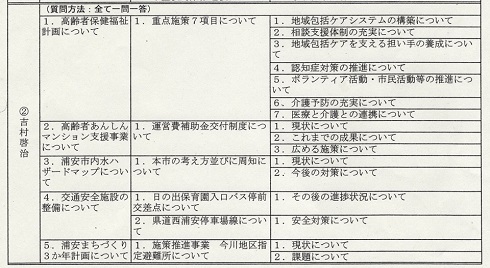 （質問方法：全て一問一答）
②吉村啓治
１．高齢者保健福祉
計画について
１．重点施策７項目について
１．地域包括ケアシステムの構築について
２．相談支援体制の充実について
３．地域包括ケアを支える担い手の養成につい
て
４．認知症対策の推進について
５．ボランティア活動・市民活動等の推進につ
いて
６．介護予防の充実について
７．医療と介護との連携について
２．高齢者あんしん
マンション支援事業
について
１．運営費補助金交付制度につ
いて
１．現状について
２．これまでの成果について
３．広める施策について
３．浦安市内水ハ
ザードマップについ
て
１．本市の考え方並びに周知に
ついて
１．現状について
２．今後の対策について
４．交通安全施設の
整備について
１．日の出保育園入口バス停前
交差点について
１．その後の進捗状況について
２．県道西浦安停車場線につい
て
１．安全対策について
５．浦安まちづくり
３か年計画について
１．施策推進事業　今川地区指
定避難所について
１．現状について
２．課題について